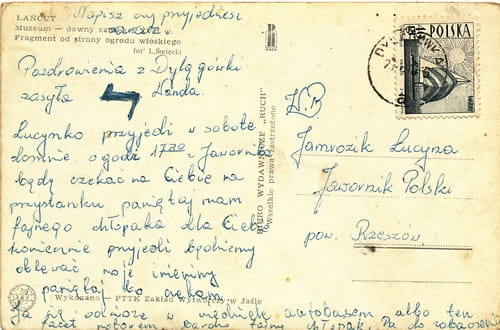 Napisz czy przyjedziesz
ŁAŃCUT
Muzeum — dawny w.
Fragment od strony ogrodu włoskiego
fot. L. Święcki
POLSKA
Pozdrowienia z Dylągówki
zasyła Wanda.
W.P
Lucynko przyjedź w sobotę
do mnie o godz 17²⁰ z Jawornika
będę czekać na Ciebie na
przystanku pamiętaj mam
fajnego chłopaka dla Ciebie
koniecznie przyjdź będziemy
oblewać moje imieniny
pamiętaj bo czekam
Jamrozik Lucyna
Jawornik Polski
pow. Rzeszów
BIURO WYDAWNICZE „RUCH"
Wszelkie prawa zastrzeżone
Wykonano PTTK Zakład Wytwórczy w Jaśle
Ja się w autobusem albo ten
facet motorem bardzo fajny chłopak! Pa do zobaczenia